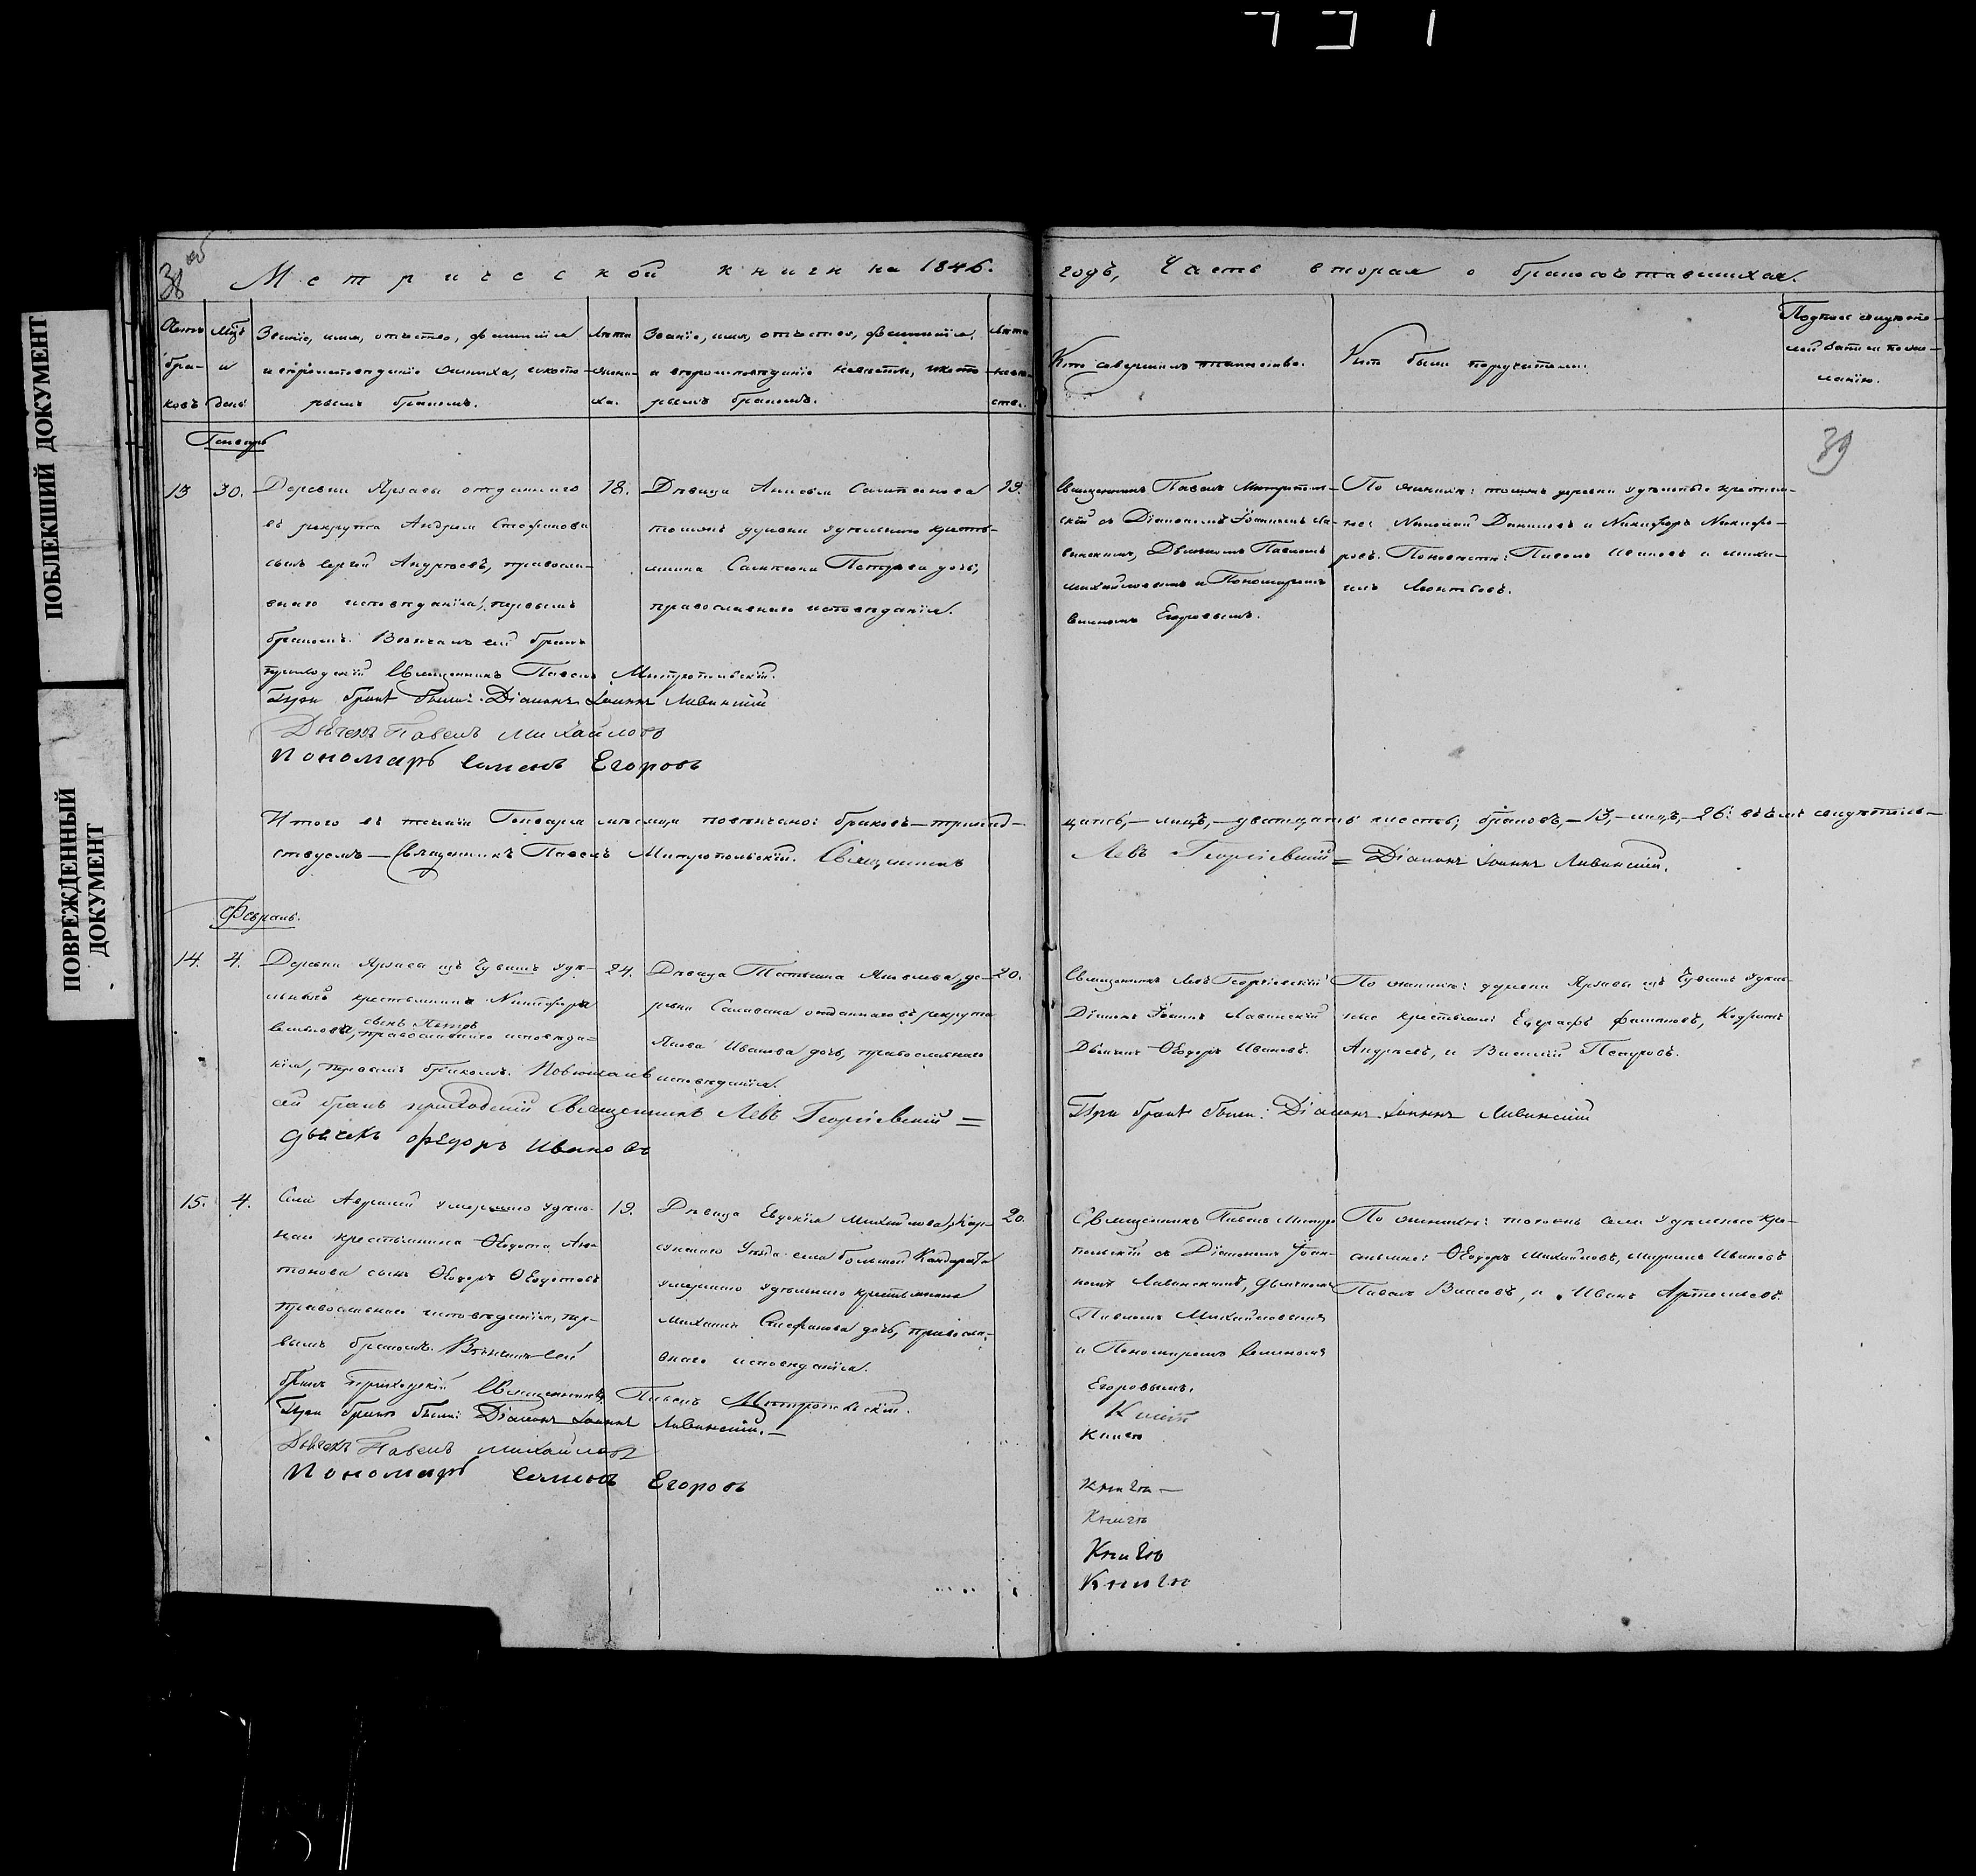 ПОБЛЕКШИЙ ДОКУМЕНТ
ПОВРЕЖДЕННЫЙ
ДОКУМЕНТ
38 об
Метрической книги на 1846.
годъ, Часть вторая о бракосочетавшихся.
Мцъ
и
день
Званіе, имя, отчество, фамилія
и вѣроисповѣданіе жениха, и кото-
рымъ бракомъ.
Лѣта
жени-
ха.
Званіе, имя, отчество, фамилія,
и вѣроисповѣданіе невѣсты, и кото
рымъ бракомъ.
Лѣта
невѣ-
сты.
Кто совершилъ таинство.
Кто были поручители.
39
Генварь
13
30.
Деревни отданнаго
въ рекрута Андрея Стефанова
сынъ Сергей Андреевъ, правосла-
внаго исповѣданія, первымъ
бракомъ. Вѣнчалъ сей бракъ
приходскій Священникъ Павелъ Митропольскій.
При бракѣ были: Діаконъ Іоаннъ Лавинскій
Дьячекъ Павелъ Михайловъ
Пономарь Семенъ Егоровъ
18.
Дѣвица
тояжъ деревни удѣльнаго кресть-
янина Петрова дочь,
православнаго исповѣданія.
19.
Священникъ Павелъ Митрополь-
скій съ Діакономъ Іоанномъ Ла-
винскимъ, Дьячкомъ Павломъ
Михайловымъ и Пономаремъ
Семеномъ Егоровымъ.
По женихѣ: тояжъ деревни удѣльные крестья-
не: Николай Даниловъ и Никифоръ Никифо-
ровъ. По невѣстѣ: Павелъ Ивановъ и Миха-
илъ Леонтьевъ.
Итого въ теченіи Генваря мѣсяца повѣнчано: браковъ — тринад-
цать, — лицъ, — двадцать шесть, браковъ, — 13, — лицъ, — 26: въ чемъ свидѣтель-
ствуемъ — Священникъ Павелъ Митропольскій. Священникъ
Левъ Георгіевскій = Діаконъ Іоаннъ Лавинскій.
Февраль.
14.
4.
Деревни изъ Чувашъ удѣ-
льныхъ крестьянина Никифора
сынъ Петръ
православнаго исповѣда-
нія, первымъ бракомъ. Повѣнчалъ
сей бракъ приходскій Священникъ Левъ Георгіевскій =
дьячекъ Федоръ Ивановъ
24.
Дѣвица Татьяна Яковлева, де-
ревни отданнаго въ рекрута
Якова Иванова дочь, православнаго
исповѣданія.
20.
Священникъ Левъ Георгіевскій
Діаконъ Іоаннъ Лавинскій
Дьячекъ Ѳеодоръ Ивановъ.
По женихѣ: деревни изъ Чувашъ удѣль-
ные крестьяне: Филиповъ,
Андреевъ, и Василій Петровъ.
При бракѣ были: Діаконъ Іоаннъ Лавинскій
15.
4.
Села умершаго удѣль-
наго крестьянина Ѳеодота Ан-
тонова сынъ Ѳеодоръ Ѳеодотовъ
православнаго исповѣданія, пер-
вымъ бракомъ. Вѣнчалъ сей
бракъ Приходскій Священникъ Павелъ Митропольскій.
При бракѣ были: Діаконъ Іоаннъ Лавинскій. —
Дьячекъ Павелъ Михайловъ
Пономарь Семенъ Егоровъ
19.
Дѣвица Евдокія Михайлова, Кар-
сунскаго Уѣзда села Большой Кандарати
умершаго удѣльнаго крестьянина
Михаила Стефанова дочь, правосла-
внаго исповѣданія.
20.
Священникъ Павелъ Митро-
польскій съ Діакономъ Іоан-
номъ Лавинскимъ, Дьячкомъ
Павломъ Михайловымъ
и Пономаремъ Семеномъ
Егоровымъ.
По женихѣ: тогожъ села удѣльные кре-
стьяне: Ѳеодоръ Михайловъ, Ивановъ
Павелъ Власовъ, и Иванъ Артемьевъ.
Книгѣ —
Книгѣ
Книгѣ
Книгѣ